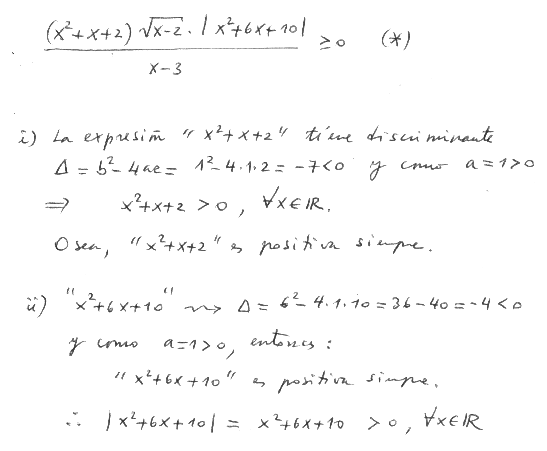 (x²+x+2) √x-2 · |x²+6x+10| / x-3 ≥ 0 (*)
i) La expresión "x²+x+2" tiene discriminante
Δ = b²-4ac = 1²-4.1.2 = -7<0 y como a=1>0
⇒ x²+x+2 > 0, ∀x∈ℝ.
O sea, "x²+x+2" es positiva siempre.
ii) "x²+6x+10" ⇝ Δ = 6²-4.1.10 = 36-40 = -4<0
y como a=1>0, entonces:
"x²+6x+10" es positiva siempre.
∴ |x²+6x+10| = x²+6x+10 > 0, ∀x∈ℝ